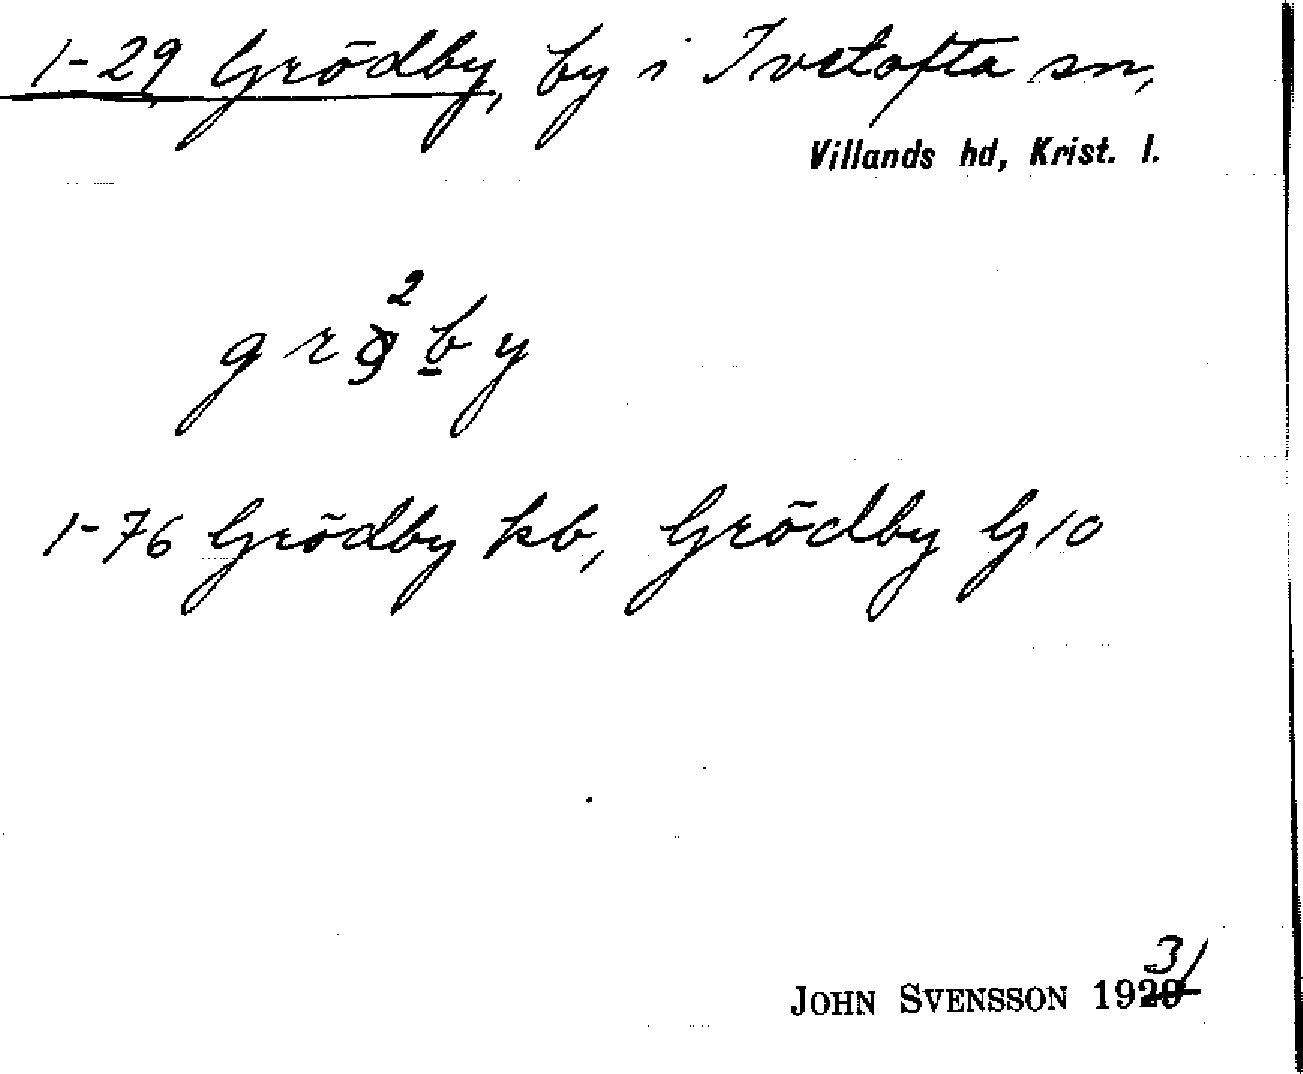 1-29 Grödby, by i Ivetofta sn,
Villands hd, Krist. l.
2
1-76 Grödby kb, Grödby G10
31
JOHN SVENSSON 1929